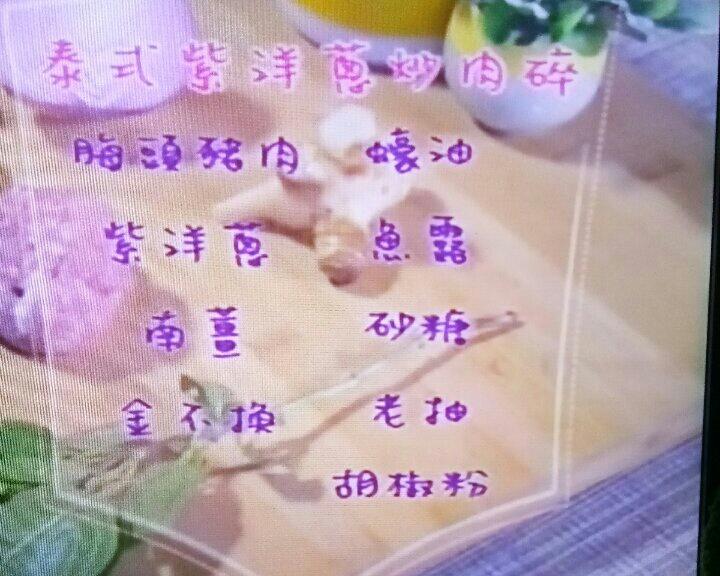 泰式紫洋蔥炒肉碎
脢頭豬肉 蠔油
紫洋蔥 魚露
南薑 砂糖
金不換 老抽
胡椒粉